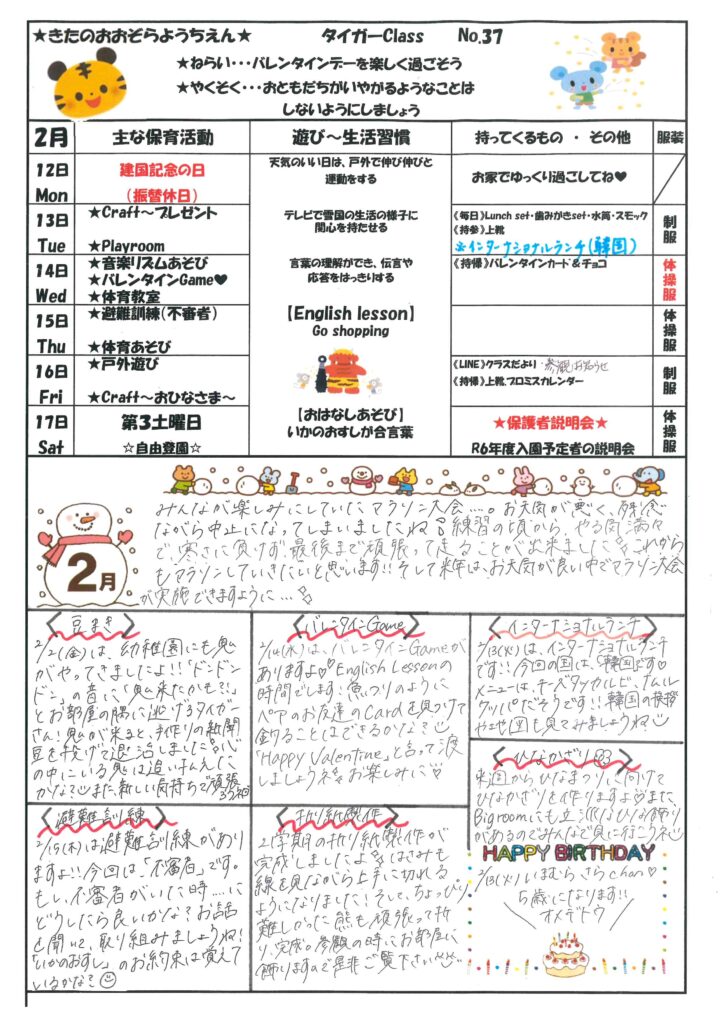 ★きたのおおぞらようちえん★ タイガーClass No.37
★ねらい・・・バレンタインデーを楽しく過ごそう
★やくそく・・・おともだちがいやがるようなことは
しないようにしましょう
2月 主な保育活動 遊び～生活習慣 持ってくるもの ・ その他 服装
12日 Mon
建国記念の日
(振替休日)
天気のいい日は、戸外で伸び伸びと
運動をする
お家でゆっくり過ごしてね♥
13日 Tue
★Craft～プレゼント
★Playroom
テレビで雪国の生活の様子に
関心を持たせる
《毎日》Lunch set・歯みがきset・水筒・スモック
《持参》上靴
※インターナショナルランチ(韓国)
制服
14日 Wed
★音楽リズムあそび
★バレンタインGame♥
★体育教室
言葉の理解ができ、伝言や
応答をはっきりする
《持帰》バレンタインカード&チョコ
体操服
15日 Thu
★避難訓練(不審者)
★体育あそび
【English lesson】
Go shopping
体操服
16日 Fri
★戸外遊び
★Craft～おひなさま～
《LINE》クラスだより・参観お知らせ
《持帰》上靴、プロミスカレンダー
制服
17日 Sat
第3土曜日
☆自由登園☆
【おはなしあそび】
いかのおすしが合言葉
★保護者説明会★
R6年度入園予定者の説明会
体操服
2月
みんなが楽しみにしていたマラソン大会….。お天気が悪く、残念
ながら中止になってしまいましたね 練習の頃から、やる気満々
で寒さに負けず最後まで頑張って走ることが出来ました これから
もマラソンしていきたいと思います!!そして来年は、お天気が良い中でマラソン大会
が実施できますように…
豆まき
2/2(金)は、幼稚園にも鬼
がやってきましたよ!!「ドンドン
ドン」の音に「鬼来たかも?!」
とお部屋の隅に逃げるタイガー
さん!鬼が来ると、手作りの新聞
豆を投げて退治しました 心
の中にいる鬼は追いはらえた
かな また、新しい気持ちで頑張
ろうね
バレンタインGame
2/14(水)は、バレンタインGameが
ありますよ♡English Lessonの
時間でします!魚つりのように
ペアのお友達のCardを見つけて
釣ることはできるかな?
「Happy Valentine」と言って渡
しましょうね お楽しみに♡
インターナショナルランチ
2/13(火)は、インターナショナルランチ
です!!今回の国は、「韓国」です♡
メニューは、チーズタッカルビ、ナムル
クッパだそうです!!韓国の挨拶
や地図も見てみましょうね
ひなかざり
来週からひなまつりに向けて
ひなかざりを作りますよ♡また、
Big roomにも立派なひな飾り
があるのでみんなで見に行こうね
避難訓練
2/15(木)は避難訓練があり
ますよ!!今回は「不審者」です。
もし、不審者がいた時….に
どうしたら良いかな?お話
を聞いて、取り組みましょうね!
「いかのおすし」のお約束は覚えて
いるかな?
折り紙製作
2学期の折り紙製作が
完成しましたよ はさみも
線を見ながら上手に切れる
ようになりました!そして、ちょっぴり
難しかった熊も頑張って折
り、完成。参観の時にお部屋に
飾りますので是非ご覧下さい
HAPPY BIRTHDAY
2/13(火) いまむら さら chan♡
5歳になります!!
オメデトウ